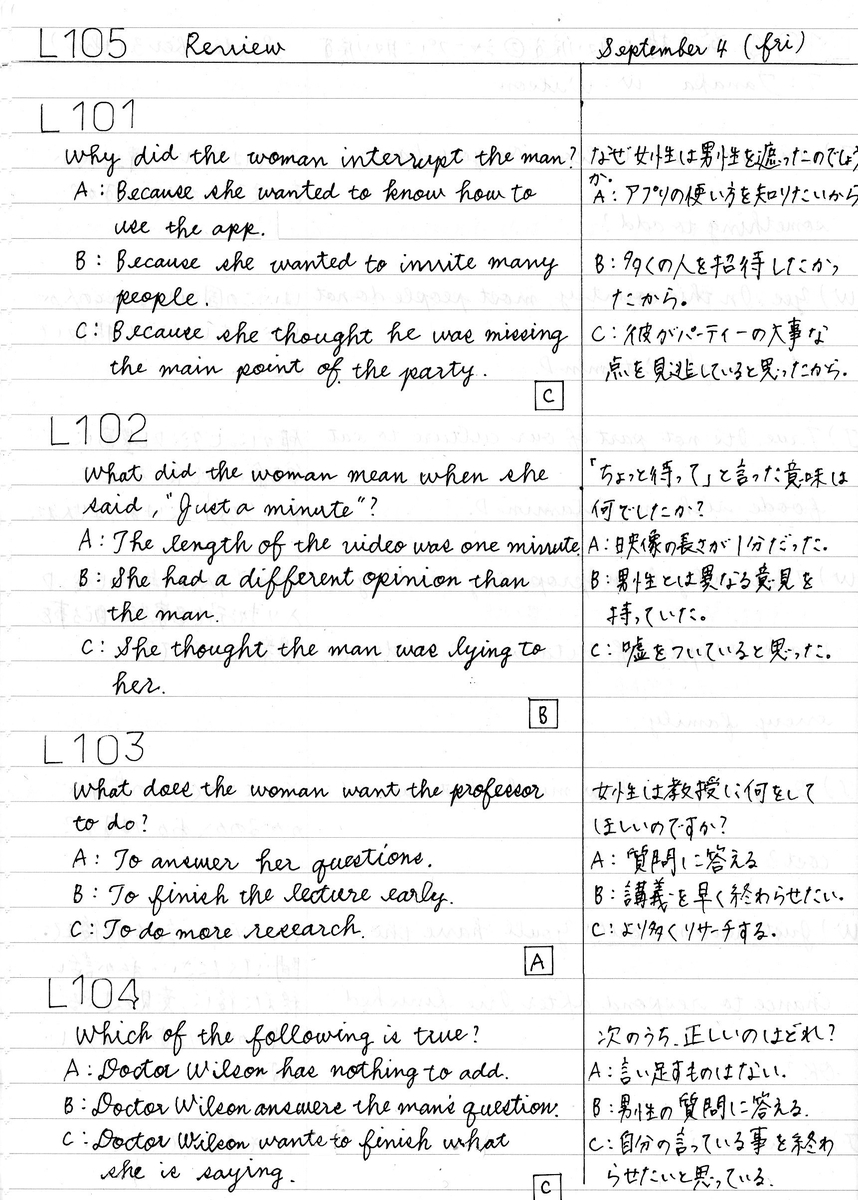 L105 Review September 4 (fri)
L101
Why did the woman interrupt the man? なぜ女性は男性を遮ったのでしょうか。
A: Because she wanted to know how to A: アプリの使い方を知りたいから
use the app.
B: Because she wanted to invite many B: 多くの人を招待したかっ
people. たから。
C: Because she thought he was missing C: 彼がパーティーの大事な
the main point of the party. 点を見逃していると思ったから。
C
L102
What did the woman mean when she 「ちょっと待って」と言った意味は
said, "Just a minute"? 何でしたか?
A: The length of the video was one minute. A: 映像の長さが1分だった。
B: She had a different opinion than B: 男性とは異なる意見を
the man. 持っていた。
C: She thought the man was lying to C: 嘘をついていると思った。
her.
B
L103
What does the woman want the professor 女性は教授に何をして
to do? ほしいのですか?
A: To answer her questions. A: 質問に答える
B: To finish the lecture early. B: 講義を早く終わらせたい。
C: To do more research. C: より多くリサーチする。
A
L104
Which of the following is true? 次のうち、正しいのはどれ?
A: Doctor Wilson has nothing to add. A: 言い足すものはない。
B: Doctor Wilson answers the man's question. B: 男性の質問に答える.
C: Doctor Wilson wants to finish what C: 自分の言っている事を終わ
she is saying. らせたいと思っている.
C